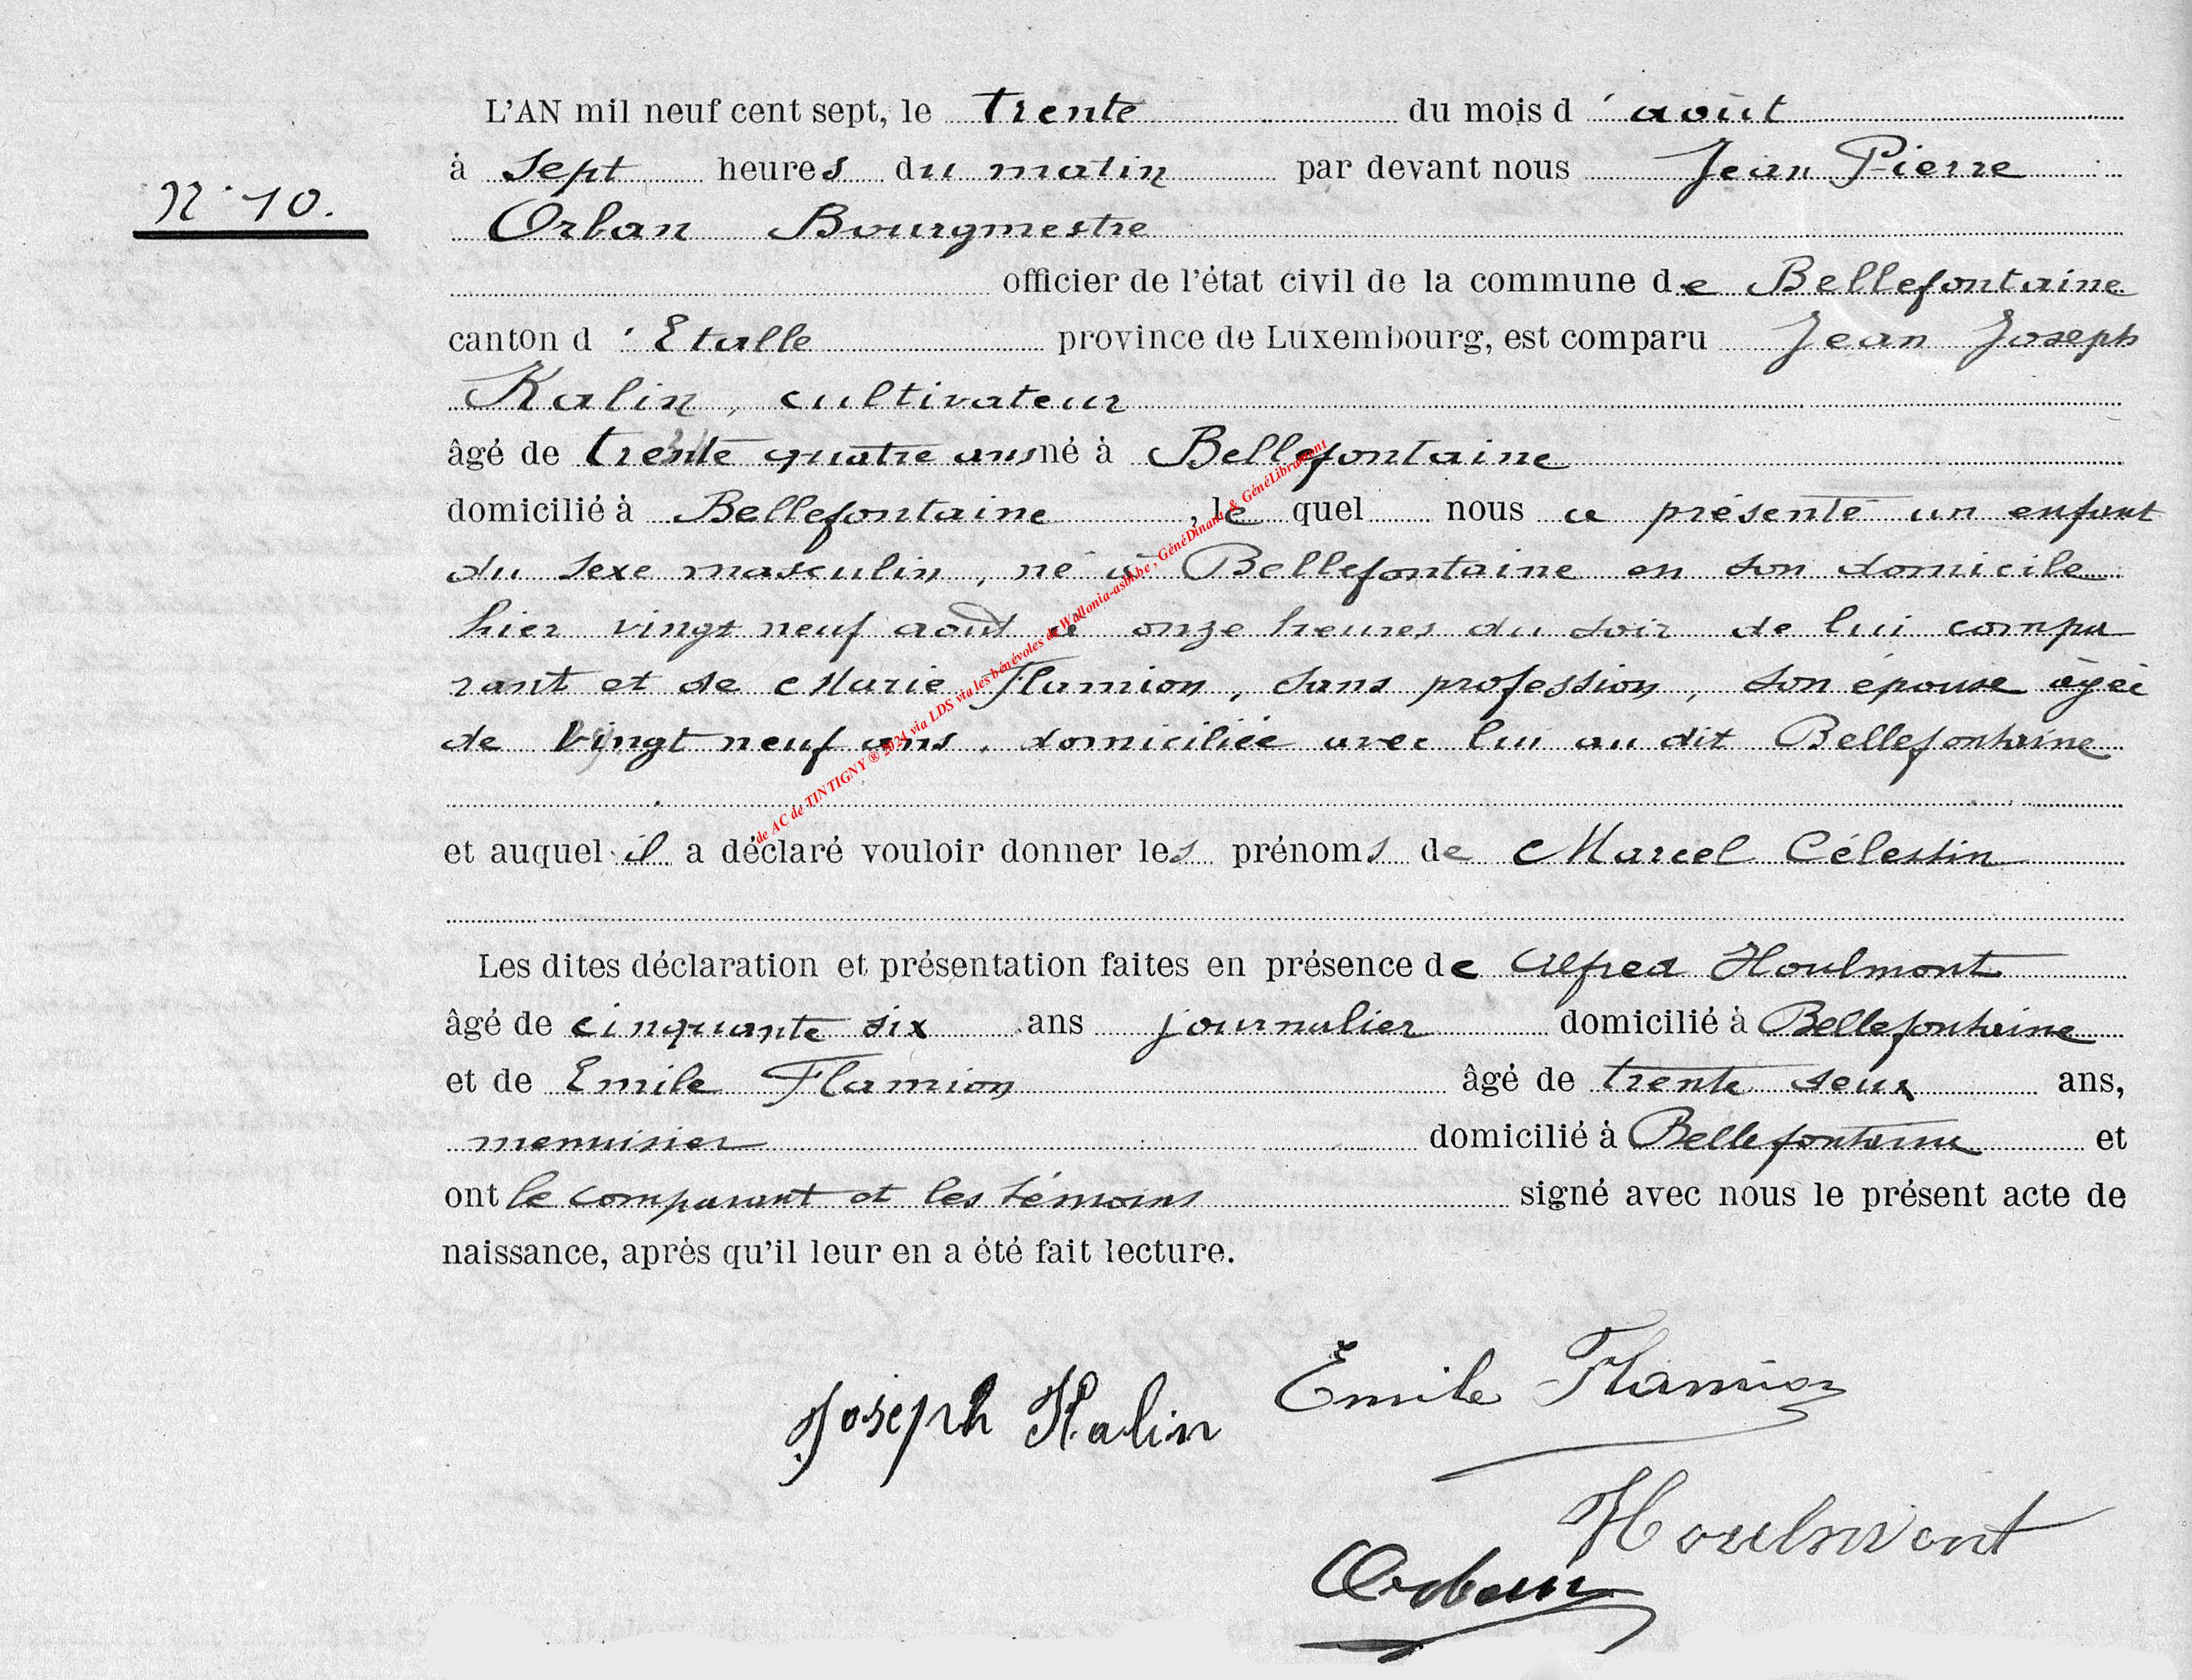 L'AN mil neuf cent sept, le trente du mois d'août
à sept heures du matin par devant nous Jean Pierre
N° 10.
Orban Bourgmestre
officier de l'état civil de la commune de Bellefontaine
canton d'Etalle province de Luxembourg, est comparu Jean Joseph
Kalin, cultivateur
âgé de trente quatre ans né à Bellefontaine
domicilié à Bellefontaine, lequel nous a présenté un enfant
du sexe masculin, né à Bellefontaine en son domicile
hier vingt neuf août à onze heures du soir de lui compa
rant et de Marie Flamion, sans profession, son épouse âgée
de vingt neuf ans, domiciliée avec lui au dit Bellefontaine
et auquel il a déclaré vouloir donner les prénoms de Marcel Célestin
Les dites déclaration et présentation faites en présence de Alfred Houlmont
âgé de cinquante six ans journalier domicilié à Bellefontaine
et de Emile Flamion âgé de trente deux ans,
menuisier domicilié à Bellefontaine et
ont le comparant et les témoins signé avec nous le présent acte de
naissance, après qu'il leur en a été fait lecture.
Joseph Kalin Emile Flamion
Houlmont
Orban
de AC de TINTIGNY ® 2024 via LDS via les bénévoles de Wallonia-asbl.be, GénéDinant & GénéLibramont